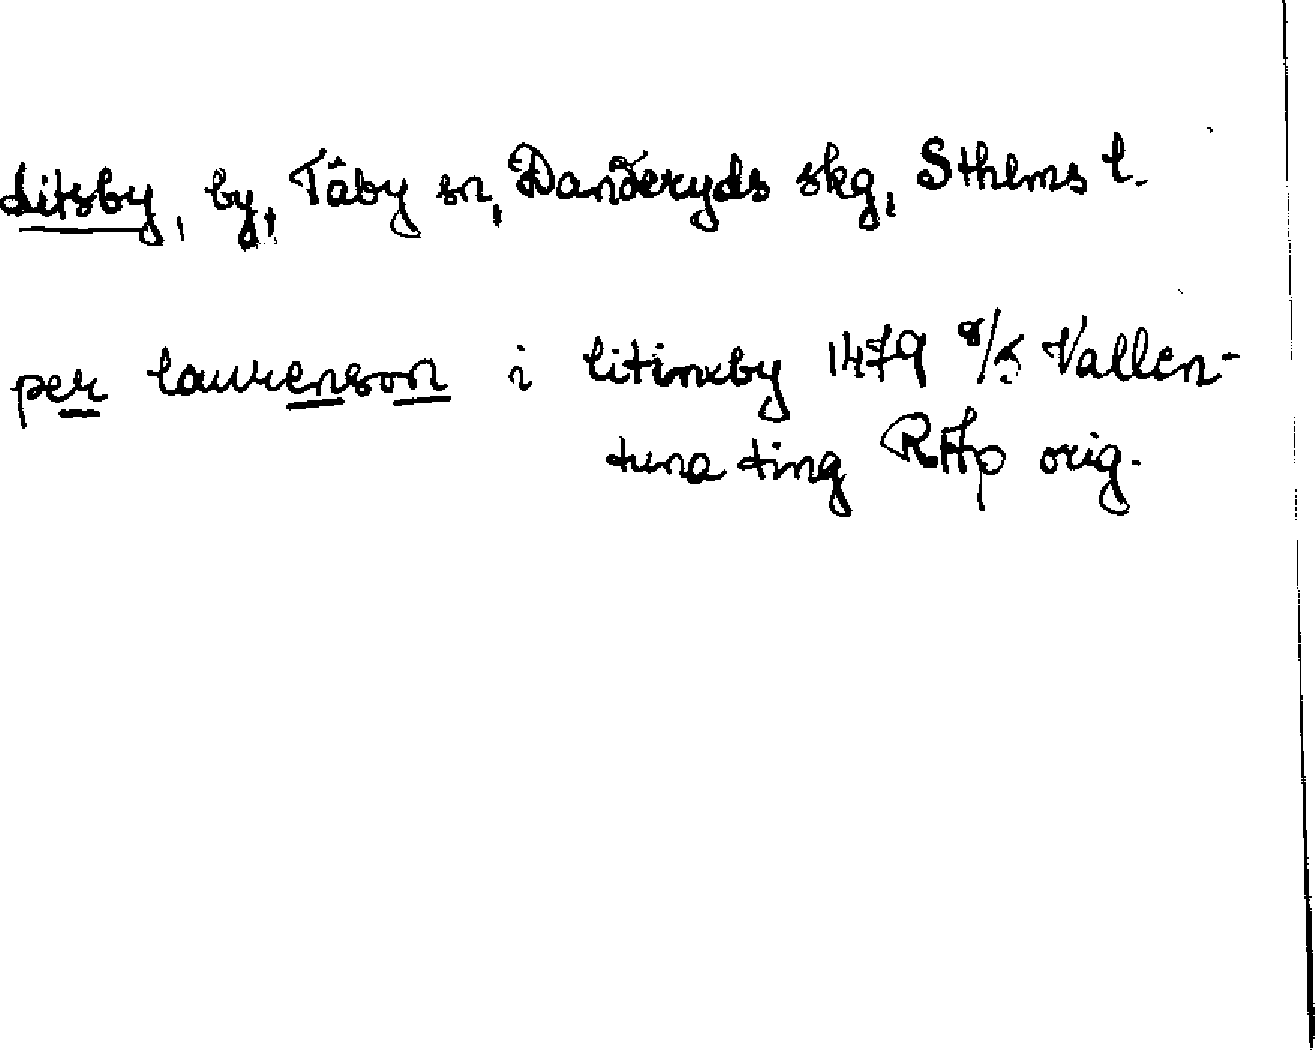 Litsby, by, Täby sn, Danderyds skg, Sthlms l.
per laurenson i litinxby 1479 8/5 Vallen-
tuna ting RAp orig.